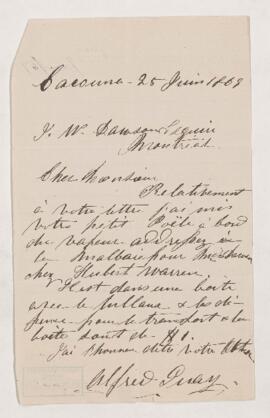 Cacouna - 25 Juin 1869
J. W. Dawson Esquire
Montréal
Cher Monsieur
Relativement
à votre lettre j'ai mis
votre petit Poële à bord
du vapeur addressez à
la Malbaie pour
chez Hubert Warren.
Il est dans une boite
avec le tuyau & les dé-
penses pour le transport & la
boîte sont de
J'ai l'honneur d'être votre
Alfred